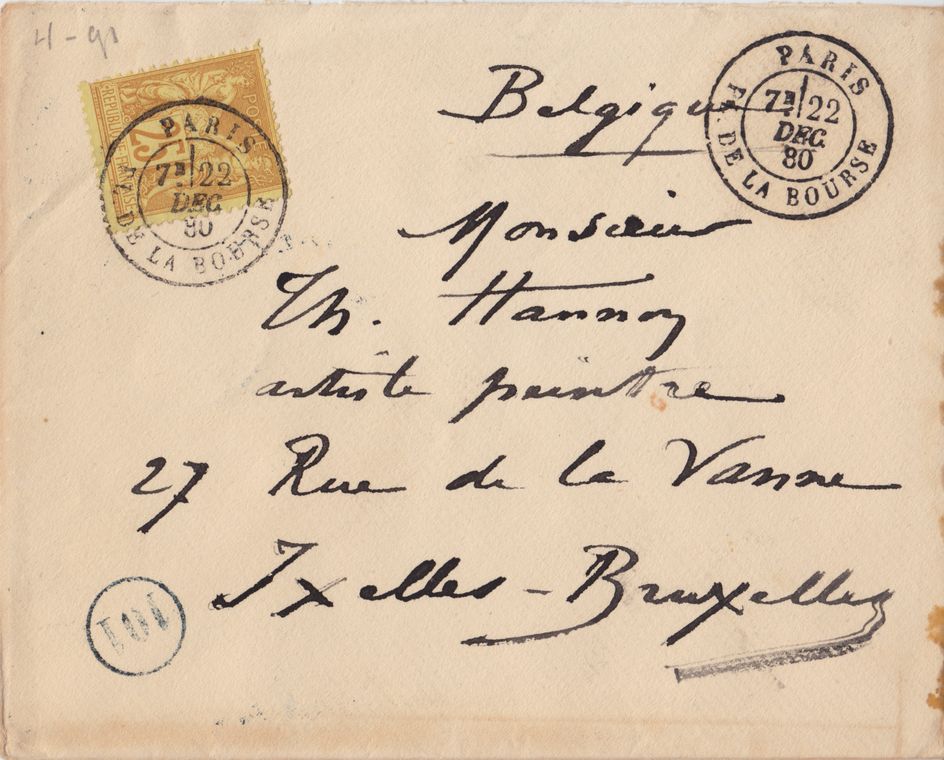 4-90
25
REPUBLIQUE FRANÇAISE
PARIS
7E 22
DEC.
80
PL. DE LA BOURSE
PARIS
7E 22
DEC.
80
PL. DE LA BOURSE
Belgique
Monsieur
Th. Hannon
artiste peintre
27 Rue de la Vanne
Ixelles - Bruxelles
101